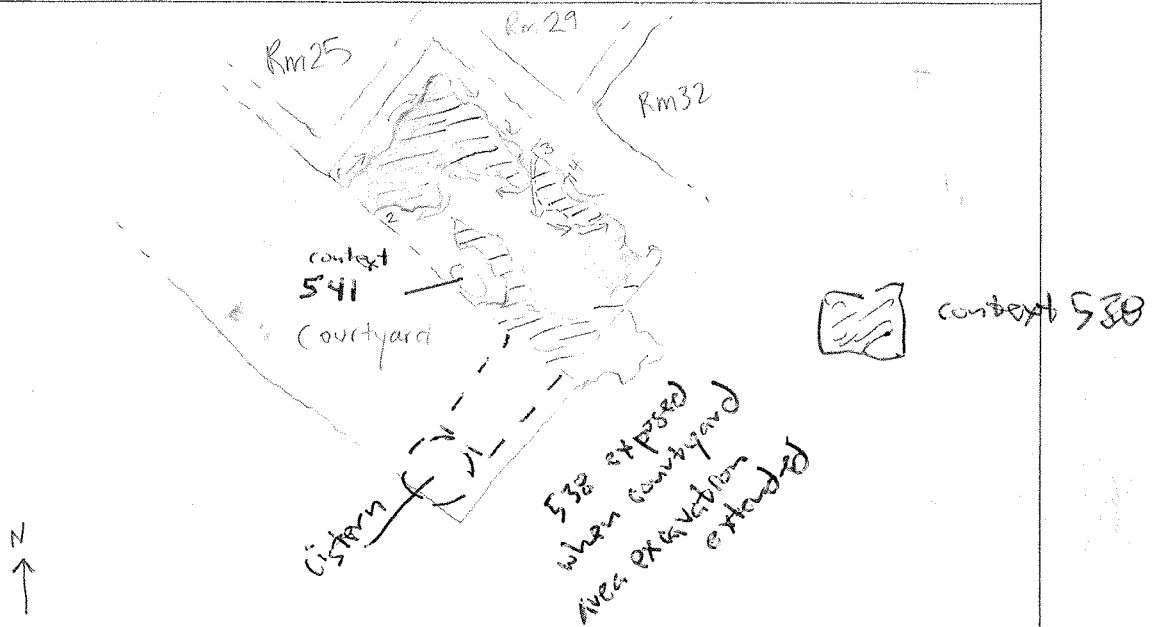 Rm 29
Rm 25
Rm 32
1
2
3
4
2
context
541
Courtyard
context 538
cistern
538 exposed
when courtyard
area excavation
extended
N